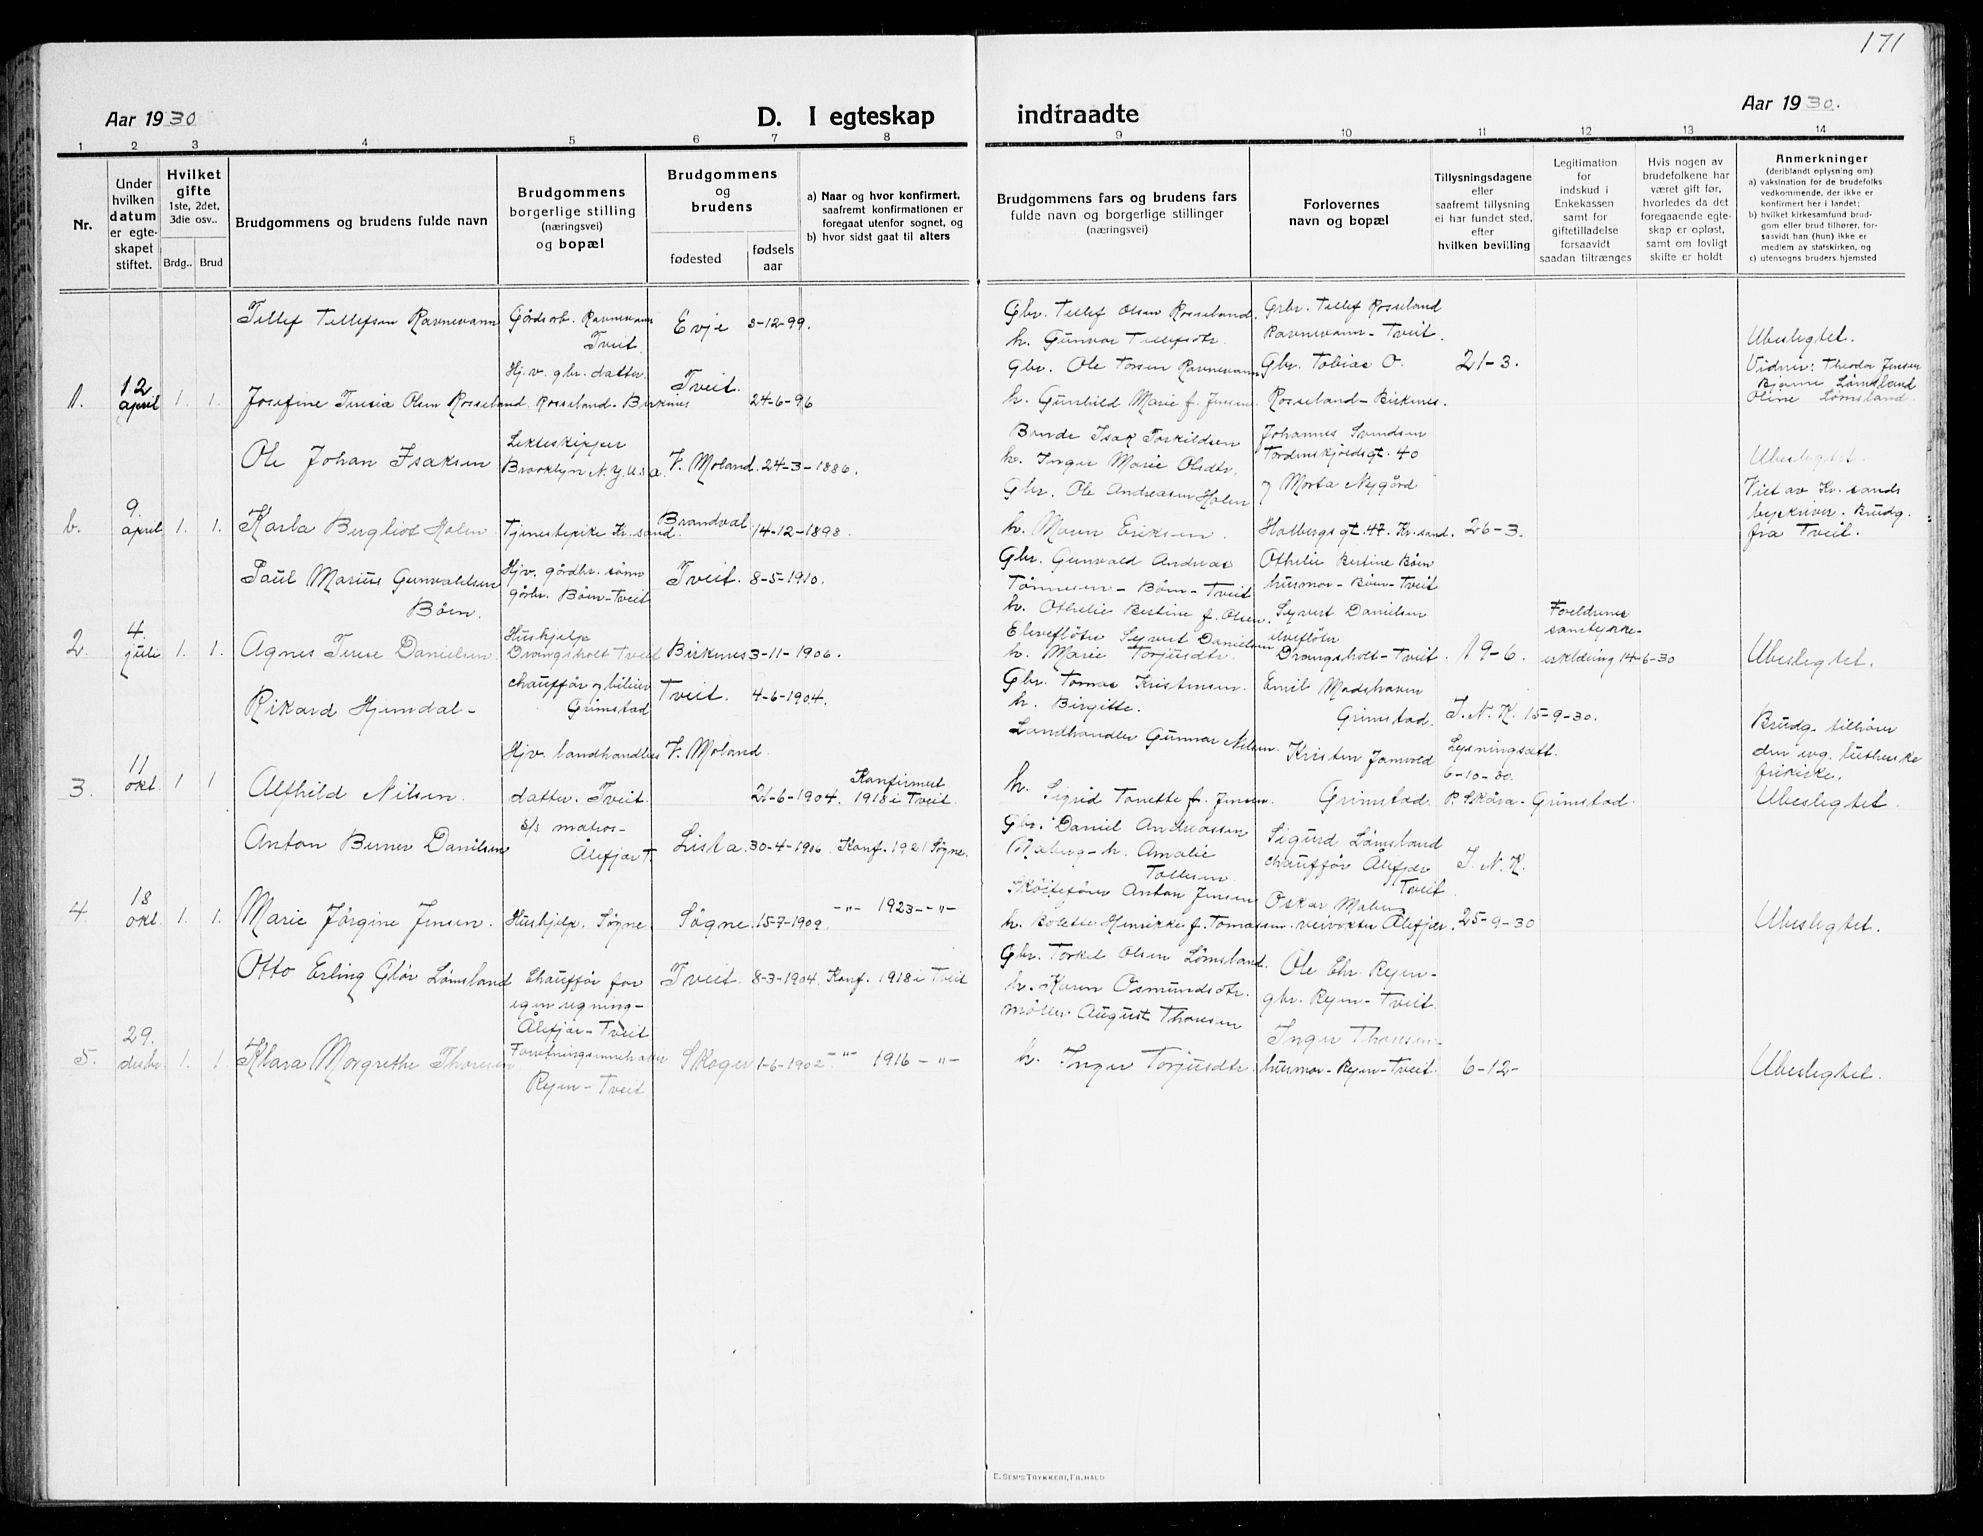 171
Aar 1930
D. I egteskap
indtraadte
Aar 1930.
1 2 3 4 5 6 7 8 9 10 11 12 13 14
Nr.
Under hvilken datum er egteskapet stiftet.
Hvilket gifte 1ste, 2det, 3die osv..
Brdg.. Brud
Brudgommens og brudens fulde navn
Brudgommens borgerlige stilling (næringsvei) og bopæl
Brudgommens og brudens
fødested
fødsels aar
a) Naar og hvor konfirmert, saafremt konfirmationen er foregaat utenfor sognet, og
b) hvor sidst gaat til alters
Brudgommens fars og brudens fars fulde navn og borgerlige stillinger (næringsvei)
Forlovernes navn og bopæl
Tillysningsdagene eller saafremt tillysning ei har fundet sted, efter hvilken bevilling
Legitimation for indskud i Enkekassen samt for giftetilladelse forsaavidt saadan tiltrænges
Hvis nogen av brudefolkene har været gift før, hvorledes da det foregaaende egteskap er opløst, samt om lovligt skifte er holdt
Anmerkninger (deriblandt oplysning om): a) vaksination for de brudefolks vedkommende, der ikke er konfirmert her i landet; b) hvilket kirkesamfund brudgom eller brud tilhører, forsaavidt han (hun) ikke er medlem av statskirken, og c) utensogns bruders hjemsted
Tellef Tellefsen Ravnevann Gårdsarb. Ravnevann Tveit. Evje 3-12-99.
Gbr. Tellef Olsen Rosseland. h. Gunvor Tellefsdtr.
Gbr. Tellef Rosseland Ravnevann - Tveit.
Ubeslegtet.
1. 12 april 1. 1. Josefine Tresia Olsen Rosseland. Hj.v. gbr. datter. Rosseland - Birkenes Tveit. 24-6-96
Gbr. Ole Torsen Ravnevann h. Gunhild Marie f. Jensen.
Gbr. Tobias O. Rosseland - Birkenes.
21-3.
Vidner: Theodor Jensen Bjarne Lømsland Oline Lømsland.
Ole Johan Isaksen Brooklyn N.Y. U.s.a. V. Moland. 24-3-1886.
Bonde Isak Torkildsen h. Inger Marie Olsdtr.
Johannes Svendsen Tordenskjoldsgt. 40
Ubeslegtet.
b. 9. april 1. 1. Karla Bergliot Holen Tjenestepike Kr.sand. Brandval. 14-12-1898.
Gbr. Ole Andreasen Holen h. Maren Eriksen.
og Marta Nygård Holbergsgt. 47. Kr.sand.
26-3.
Viet av Kr.sands byskriver. Brudg. fra Tveit.
Paul Marius Gunvaldsen Bøen. Hjv. gårdbr. sønn gårbr. Bøen - Tveit Tveit. 8-5-1910.
Gbr. Gunvald Andreas Tønnesen - Bøen - Tveit h. Othelie Bertine f. Olsen.
Othelie Bertine Bøen husmor - Bøen - Tveit
2. 4. juli 1. 1. Agnes Terese Danielsen. Hushjelp Drangsholt Tveit Birkenes 3-11-1906.
Elvefløter Syvert Danielsen h. Marie Torjusdtr.
Syvert Danielsen elvefløter Drangsholt - Tveit.
19-6.
Foreldrenes samtykke-erklæring 14-6-30
Ubeslegtet.
Rikard Hjemdal - chauffør og bileier Grimstad Tveit. 4-6-1904.
Gbr. Tomas Kristensen. h. Birgitte.
Emil Madshaven Grimstad.
I. N. K. 15-9-30.
3. 11 okt. 1 1 Alfhild Nilsen. Hjv. landhandlers datter. Tveit. V. Moland. 21-6-1904. Konfirmert 1918 i Tveit.
Landhandler Gunnar Nilsen. h. Sigrid Tonette f. Jensen.
Kristen Jomvold Grimstad.
Lysningsatt. 6-10-30. P. Skåra - Grimstad.
Brudg. tilhører den evg. lutherske frikirke. Ubeslegtet.
Anton Berner Danielsen s/s matros - Ålefjær T. Lista. 30-4-1906. Konf. 1921 Søgne.
Gbr. Daniel Andreassen h. Amalie Tollesen.
Sigurd Lømsland chauffør Ålefjær Tveit.
I. N. K.
4. 18 okt. 1. 1. Marie Jørgine Jensen. Hushjelp. Søgne. Søgne. 15-7-1909. -"- 1923 -"-
Skøitefører Anton Jensen h. Bolette Henrikke f. Tomassen.
Oskar Moben veivokter Ålefjær.
25-9-30
Ubeslegtet.
Otto Erling Glør Lømsland Chauffør for egen regning - Ålefjær - Tveit Tveit. 8-3-1904. Konf. 1918 i Tveit
Gbr. Torkel Olsen Lømsland. h. Karen Osmundsdtr.
Ole Chr. Ryen - gbr. Ryen - Tveit.
5. 29. desbr. 1. 1. Klara Margrethe Thoresen Forretningsinnehaver Ryen - Tveit Skoger 1-6-1902. -"- 1916 -"-
møller August Thoresen h. Inger Torjusdtr.
Inger Thoresen - husmor - Ryen - Tveit.
6-12-
Ubeslegtet.
E. SEM'S TRYKKERI, FR.HALD